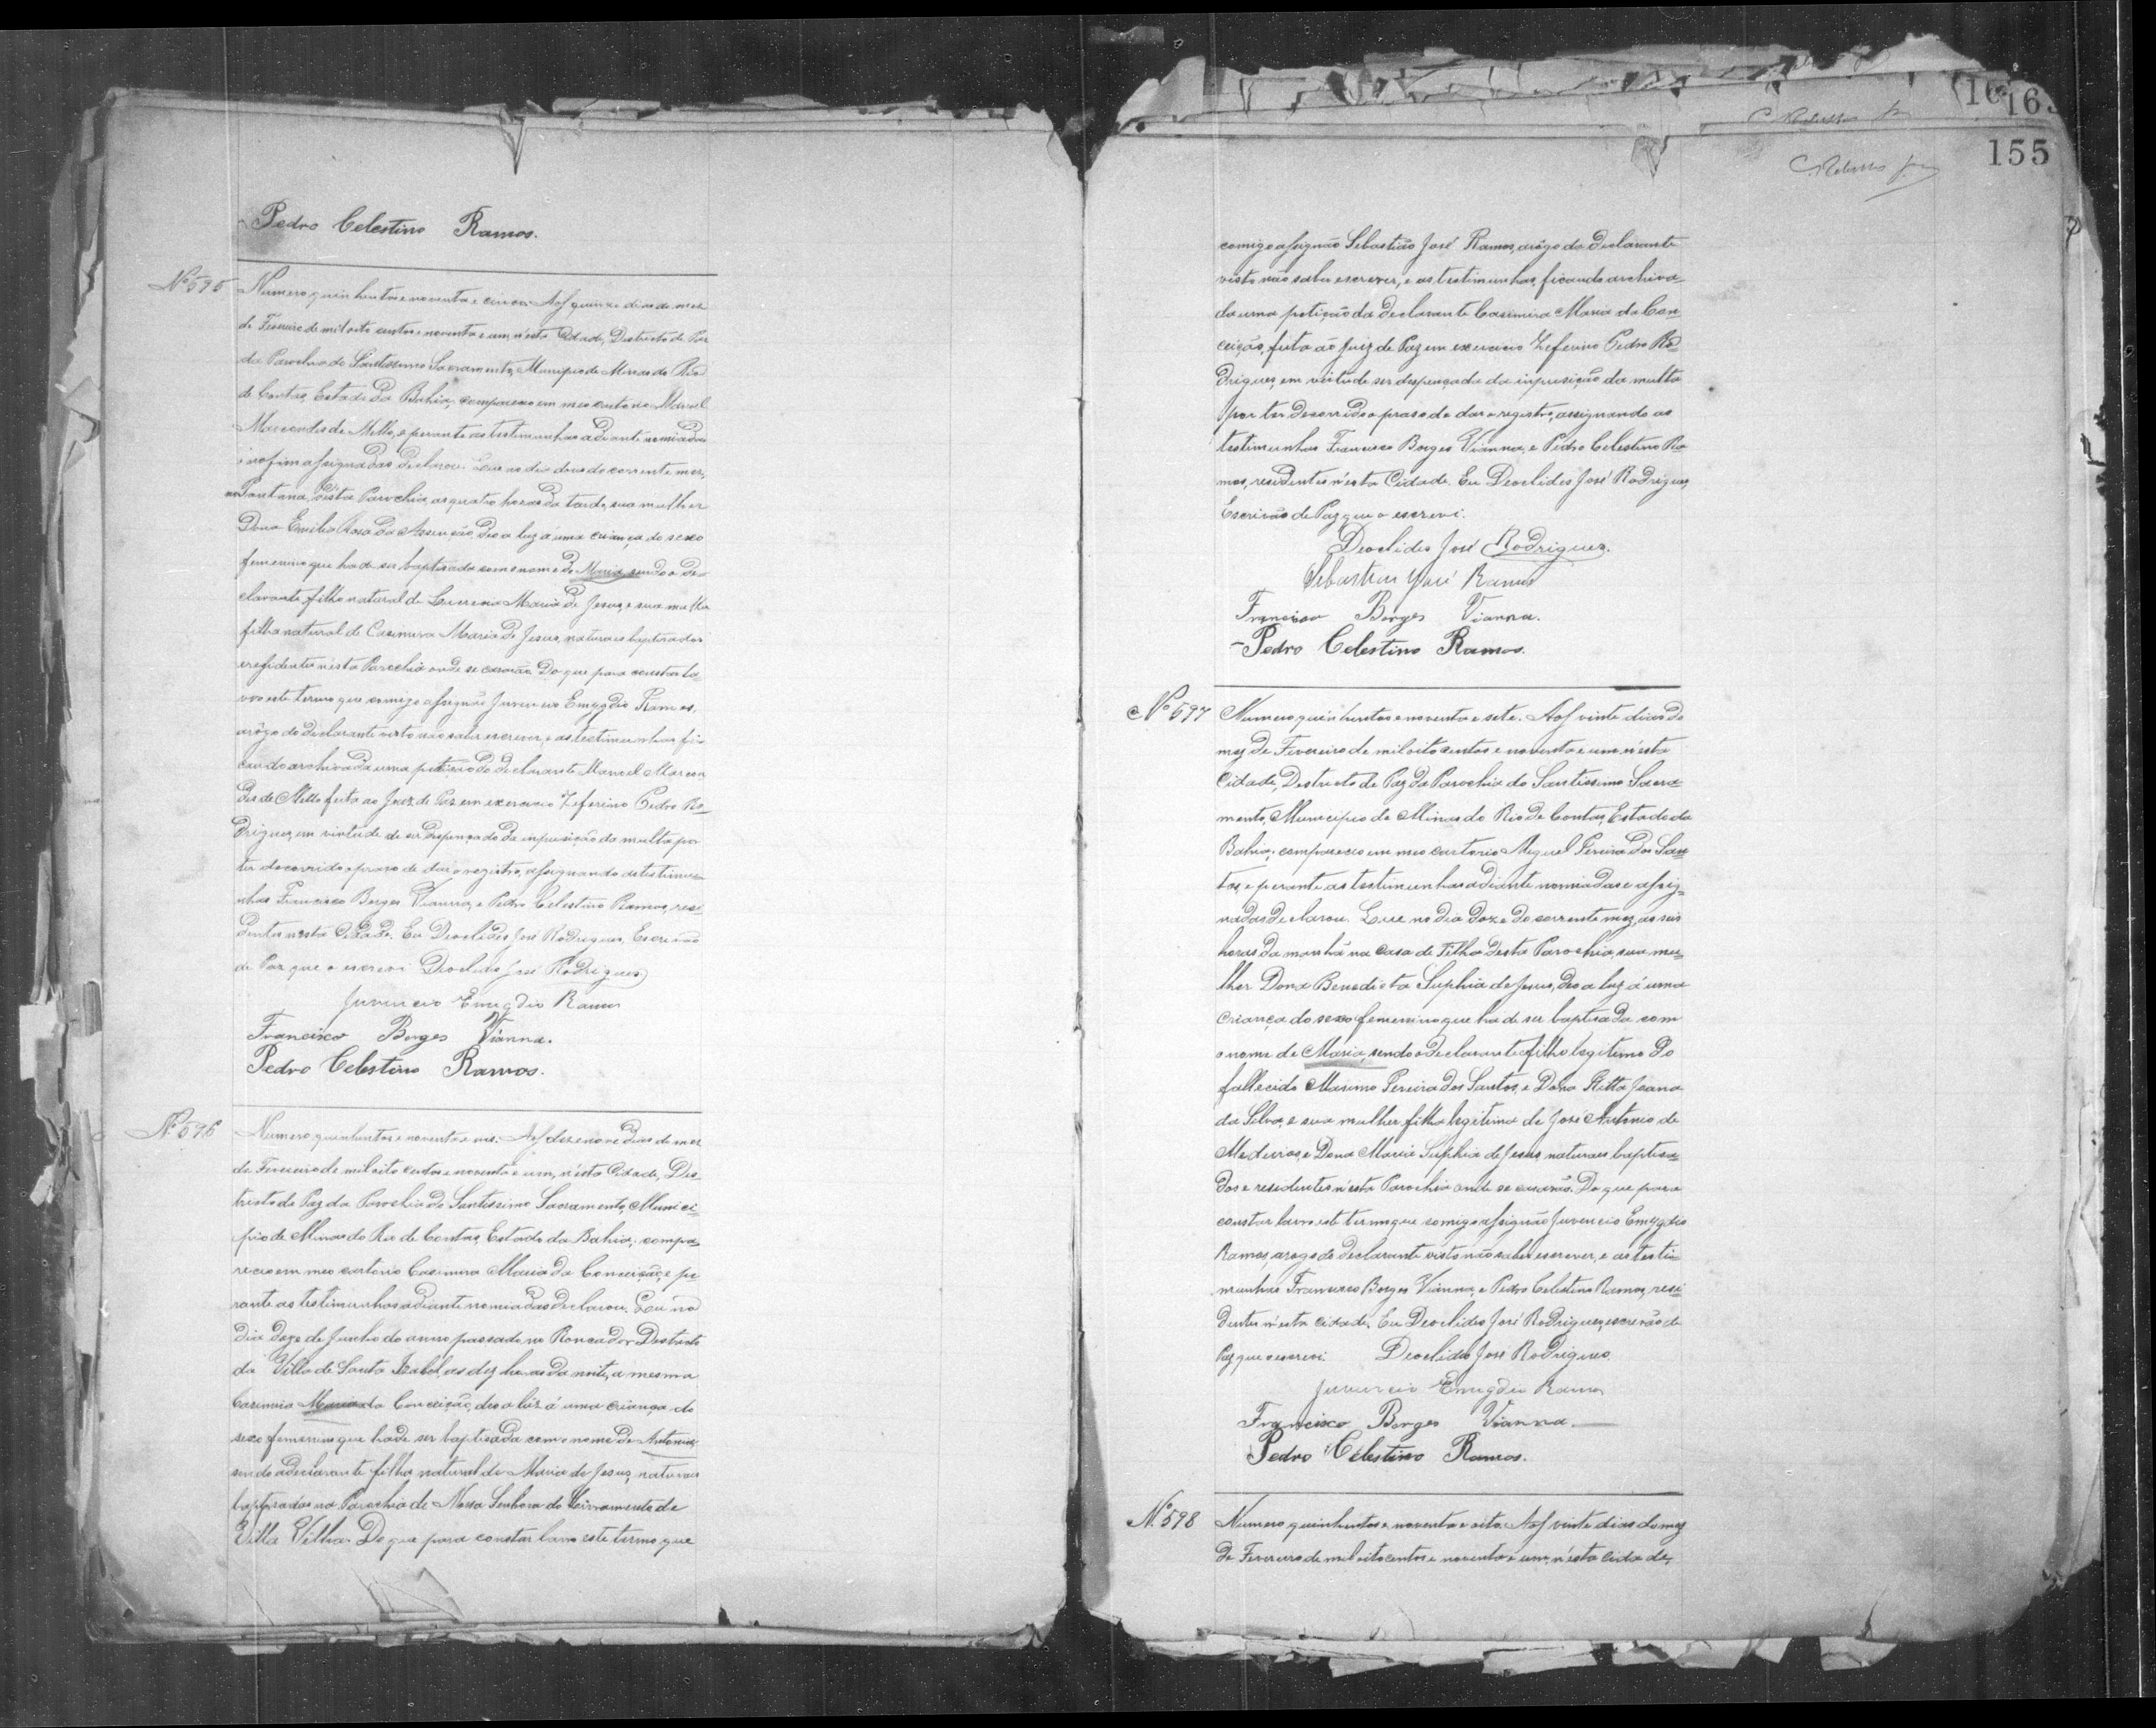 Pedro Celestino Ramos.
Nº 595
Numero quinhentos e noventa e cinco. Aos quinze dias do mez
de Fevereiro de mil oito centos e noventa e um, n'esta Cidade, Destricto de Paz
da Parochia do Santissimo Sacramento, Municipio de Minas do Rio
de Contas, Estado da Bahia; compareceo em meo cartorio Manoel
Marcondes de Mello, e perante as testimunhas adiante nomiadas
e no fim assignadas declarou: Que no dia dous do corrente mez,
Santana, desta Parochia, as quatro horas da tarde, sua mulher
Dona Emilia Rosa da Assunção, deo a luz á uma criança do sexo
femenino que ha de ser baptisada com o nome de Maria, sendo o de-
clarante filho natural de Lucrecia Maria de Jesus, e sua mulher
filha natural de Casimira Maria de Jesus, naturaes baptisados
e residentes n'esta Parochia onde se casarão. Do que para constar la-
vro este termo que comigo assignão Juvencio Emygdio Ramos,
arôgo do declarante visto não saber escrever, e as testimunhas, fi-
cando archivada uma petição do declarante Manoel Marcon
des de Mello feita ao Juiz de Paz em exercicio Zeferino Pedro Ro-
drigues, em virtude de ser despençado da inpusição da multa por
ter decorrido o praso de dar o registro, assignando as testimu-
nhas Francisco Borges Vianna, e Pedro Celestino Ramos, resi-
dentes nesta Cidade. Eu Deoclides José Rodrigues, Escrivão
de Paz que o escrevi Deoclides José Rodrigues
Juvencio Emygdio Ramos
Francisco Borges Vianna.
Pedro Celestino Ramos.
Nº 596
Numero quinhentos e noventa e seis. Aos desenove dias do mez
de Fevereiro de mil oito centos e noventa e um, n'esta Cidade, Des-
tricto de Paz da Parochia do Santissimo Sacramento, Munici-
pio de Minas do Rio de Contas, Estado da Bahia; compa-
receo em meo cartorio Casimira Maria da Conceição, e pe-
rante as testimunhas adiante nomiadas declarou: Que no
dia doze de Junho do anno passado no Roncador Destricto
da Villa de Santa Izabel, as dez horas da noite, a mesma
Casimira Maria da Conceição, deo a luz á uma criança do
sexo femenino que ha de ser baptisada com o nome de Antonia,
sendo a declarante filha natural de Maria de Jesus, naturaes
baptisadas na Parochia de Nossa Senhora do Livramento de
Villa Velha. Do que para constar lavro este termo que
155
comigo assignão Sebastião José Ramos, arôgo da declarante
visto não saber escrever, e as testimunhas, ficando archiva-
da uma petição da declarante Casimira Maria da Con-
ceição, feita ao Juiz de Paz em exercicio Zeferino Pedro Ro-
drigues, em virtude ser despençada da inpusição da multa
por ter decorrido o praso de dar o registro, assignando as
testimunhas Francisco Borges Vianna, e Pedro Celestino Ra-
mos, residentes n'esta Cidade. Eu Deoclides José Rodrigues,
Escrivão de Paz que o escrevi.
Deoclides José Rodrigues.
Sebastião José Ramos
Francisco Borges Vianna.
Pedro Celestino Ramos.
Nº 597
Numero quinhentos e noventa e sete. Aos vinte dias do
mez de Fevereiro de mil oito centos e noventa e um, n'esta
Cidade, Destricto de Paz da Parochia do Santissimo Sacra-
mento, Municipio de Minas do Rio de Contas, Estado da
Bahia; compareceo em meo cartorio Miguel Pereira dos San-
tos, e perante as testimunhas adiante nomiadas e assig-
nadas declarou: Que no dia doze do corrente mez, as seis
horas da manhã na casa de Telha desta Parochia, sua mu-
lher Dona Benedicta Suphia de Jesus, deo a luz á uma
criança do sexo femenino que ha de ser baptisada com
o nome de Maria, sendo o declarante filho legitimo do
fallecido Maximo Pereira dos Santos, e Dona Ritta Joana
da Silva, e sua mulher filha legitima de José Antonio de
Medeiros, e Dona Maria Suphia de Jesus, naturaes, baptisa-
dos e residentes n'esta Parochia onde se casarão. Do que para
constar lavro este termo que comigo assignão Juvencio Emygdio
Ramos, arogo do declarante visto não saber escrever, e as testi-
munhas Francisco Borges Vianna, e Pedro Celestino Ramos, resi-
dentes n'esta cidade. Eu Deoclides José Rodrigues, escrivão de
Paz que o escrevi. Deoclides José Rodrigues
Juvencio Emygdio Ramos
Francisco Borges Vianna.
Pedro Celestino Ramos.
Nº 598
Numero quinhentos e noventa e oito. Aos vinte dias do mez
de Fevereiro de mil oito centos e noventa e um, n'esta cidade,